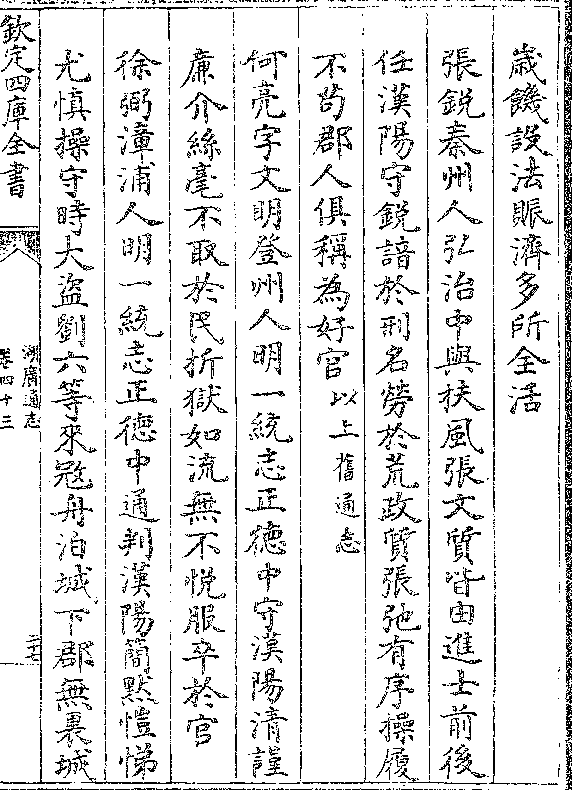 歲饑設法賑濟多所全活
張鋭秦州人弘治中與扶風張文質皆由進士前後
任漢陽守鋭諳於刑名勞於荒政質張弛有序操履
不苟郡人俱稱為好官以上舊通志
何亮字文明登州人明一統志正德中守漢陽清謹
亷介絲毫不取於民折獄如流無不悅服卒於官
徐弼漳浦人明一統志正德中通判漢陽簡默愷悌
尤慎操守時大盜劉六等來㓂舟泊城下郡無裏城
欽定四庫全書
湖廣通志
卷四十三
三十七